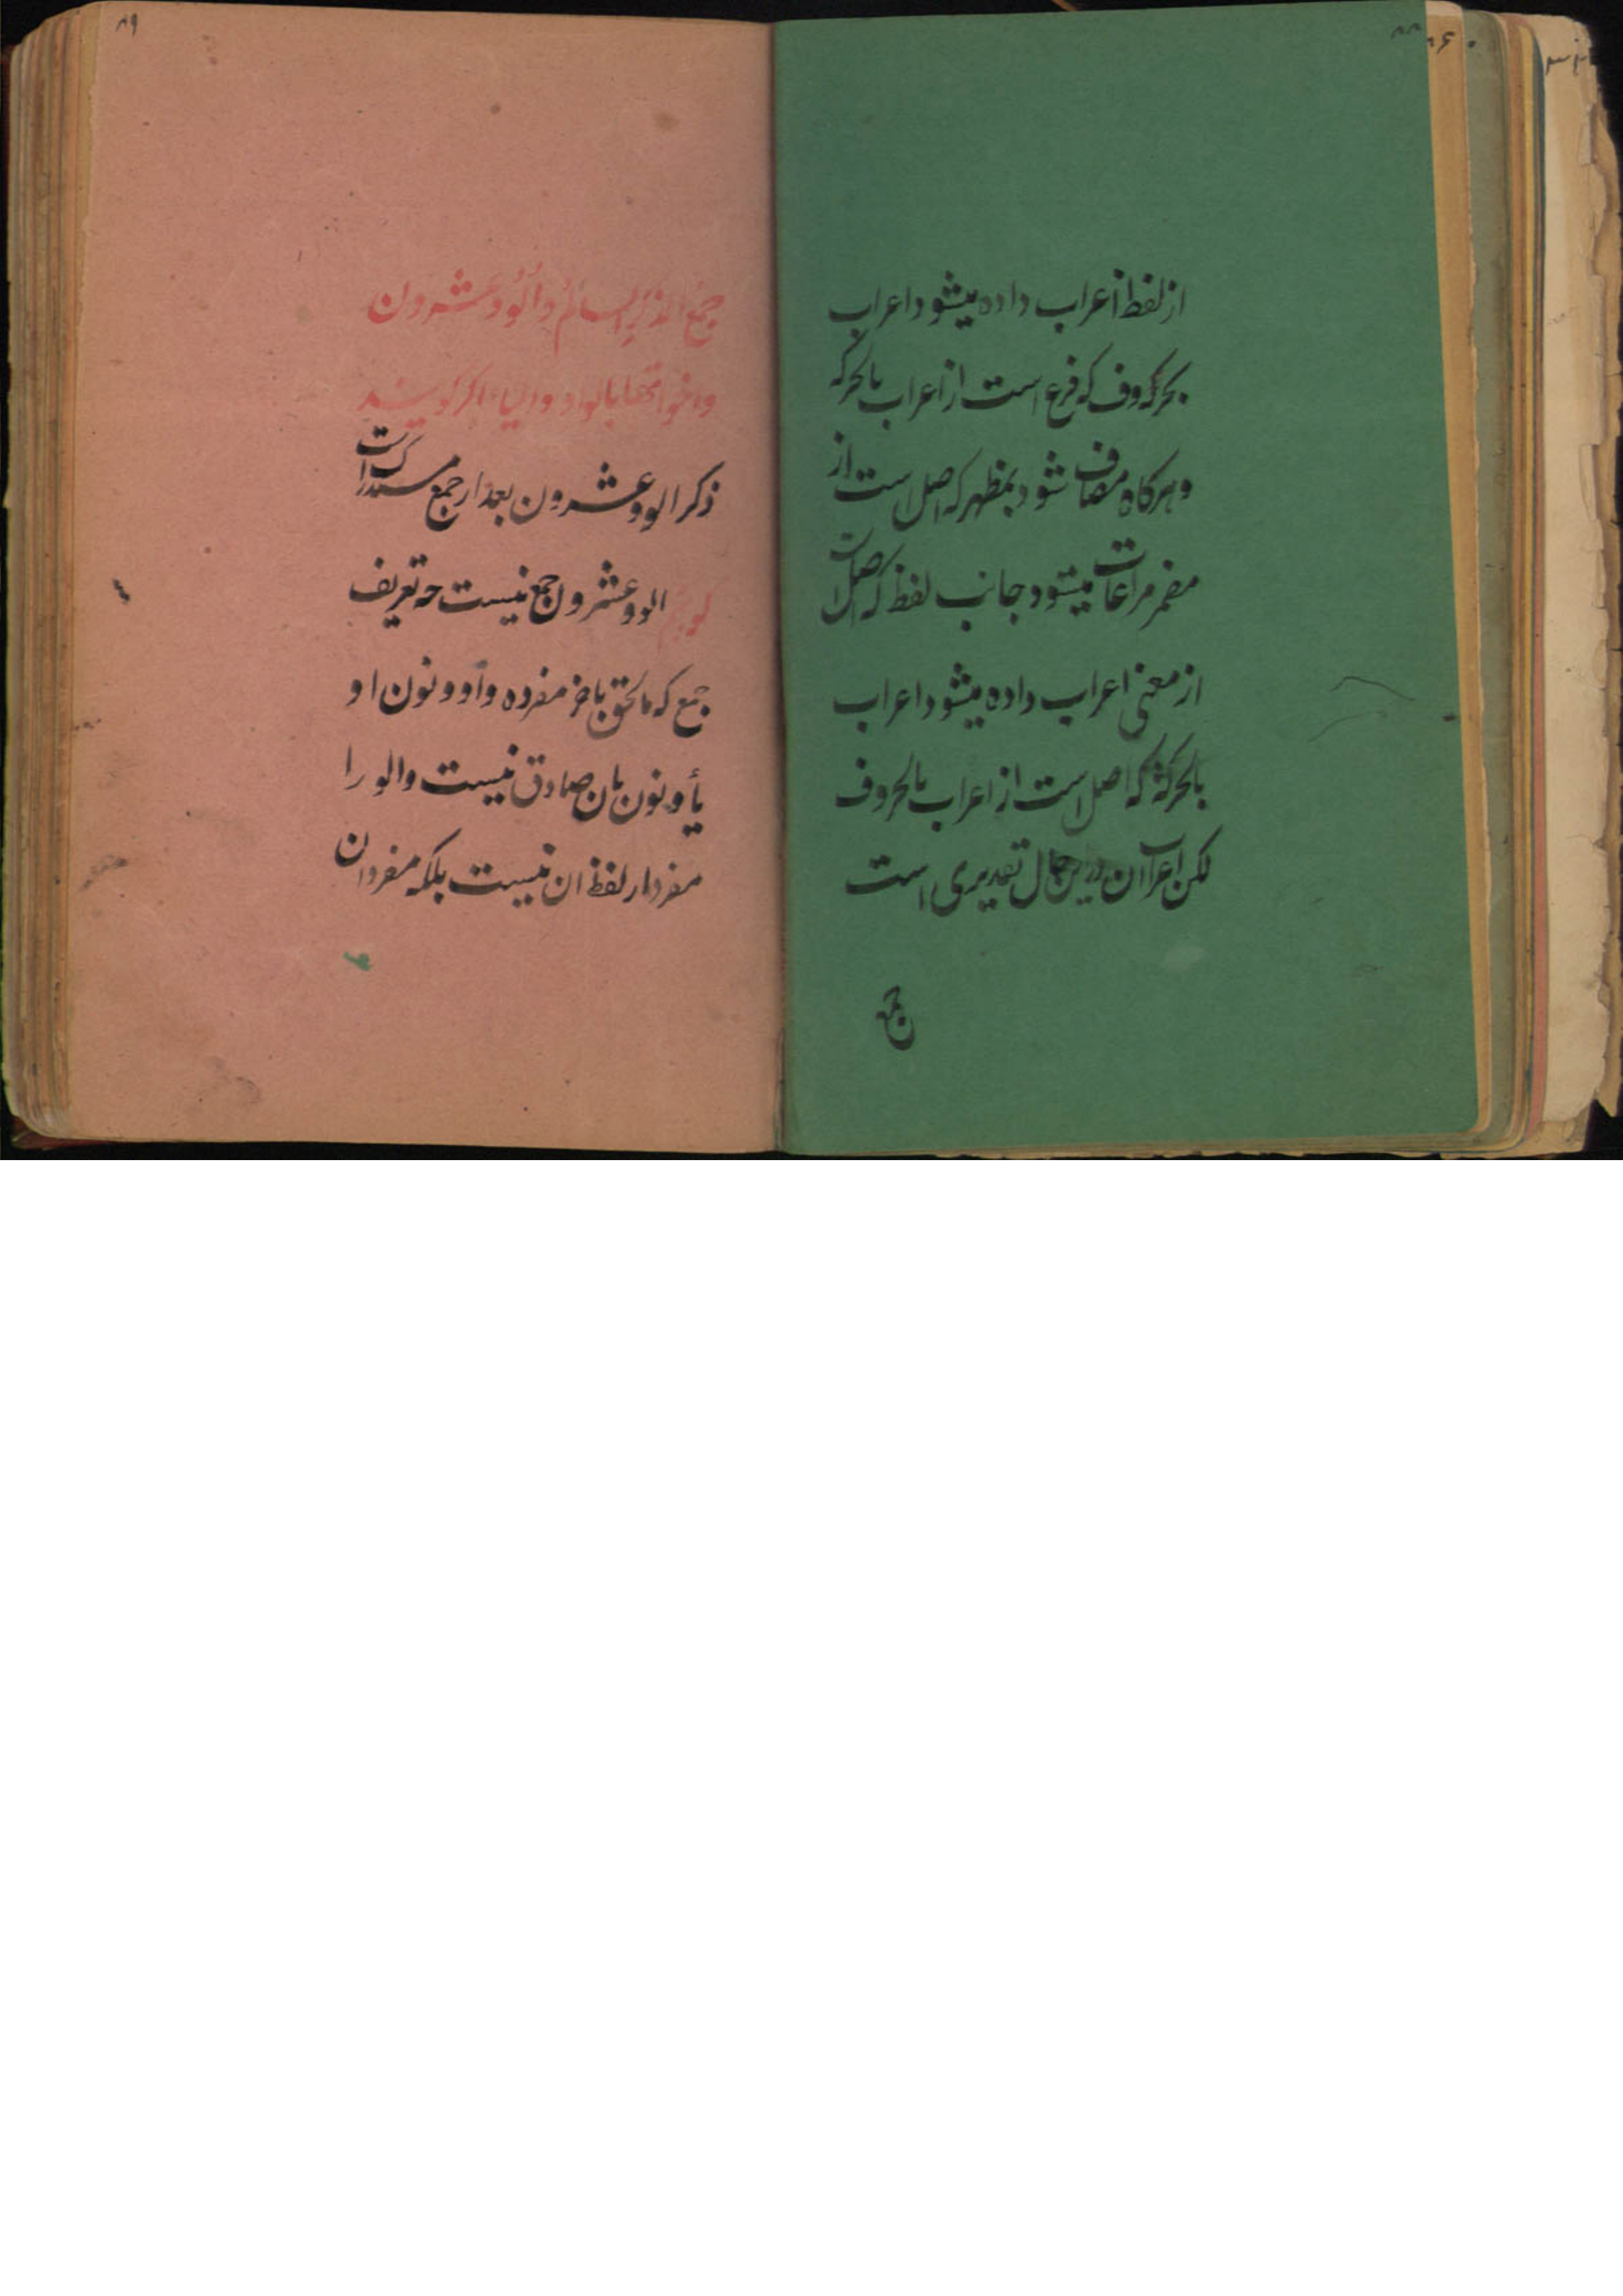 از لفظ اعراب داده میشود اعراب
بحروف که فرع است از اعراب بالحرکه
و هرکاه مضاف شود بمظهر که اصل است از
مضمر مراعات میشود جانب لفظ که اصل است
از معنی اعراب داده میشود اعراب
بالحرکة که اصل است از اعراب بالحروف
لکن اعراب ان درین حال تقدیری است
جمع
۸۹
جمع المذکر السالم و الو و عشرون
و اخواتها بالواو و الیاء اکر کویند
ذکر الو و عشرون بعد از جمع مستدرک است
کویم الو و عشرون جمع نیست چه تعریف
جمع که ما لحق باخر مفرده واو و نون او
یاء و نون بان صادق نیست و الو را
مفرد از لفظ ان نیست بلکه مفرد ان